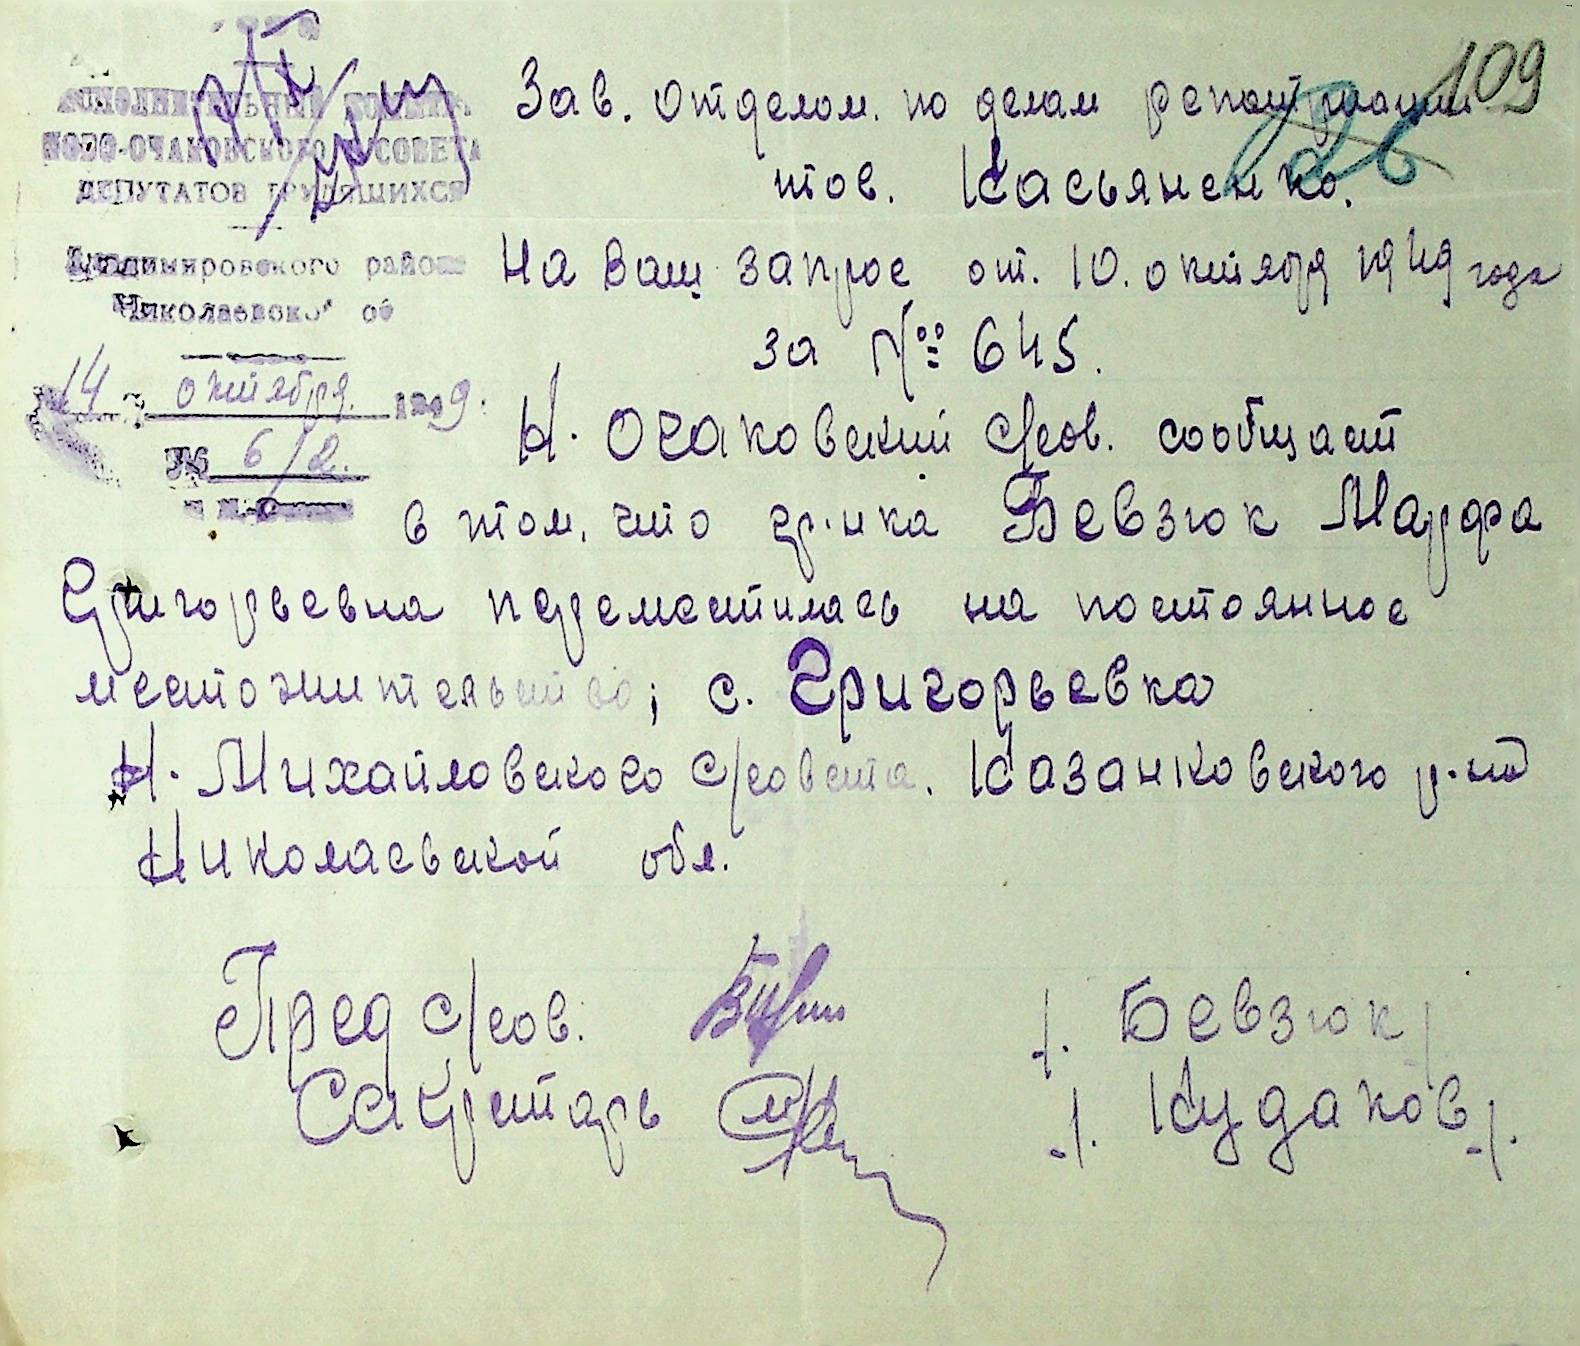 109
26
ИСПОЛНИТЕЛЬНЫЙ КОМИТЕТ
НОВО-ОЧАКОВСКОГО С/СОВЕТА
ДЕПУТАТОВ ТРУДЯЩИХСЯ
Владимировского района
Николаевской об
14 октября 1949.
№ 6/2.
Зав. отделом. по делам репатриации
тов. Касьяненко.
На Ваш запрос от. 10. октября 1949 года
за № 645.
Н. Очаковский с/сов. сообщает
в том, что гр-нка Бевзюк Марфа
Григорьевна переместилась на постоянное
местожительство; с. Григорьевка
Н. Михайловского с/совета. Казанковского р-на
Николаевской обл.
Пред с/сов. /. Бевзюк /
Сакритарь -/. Кудаков -/.